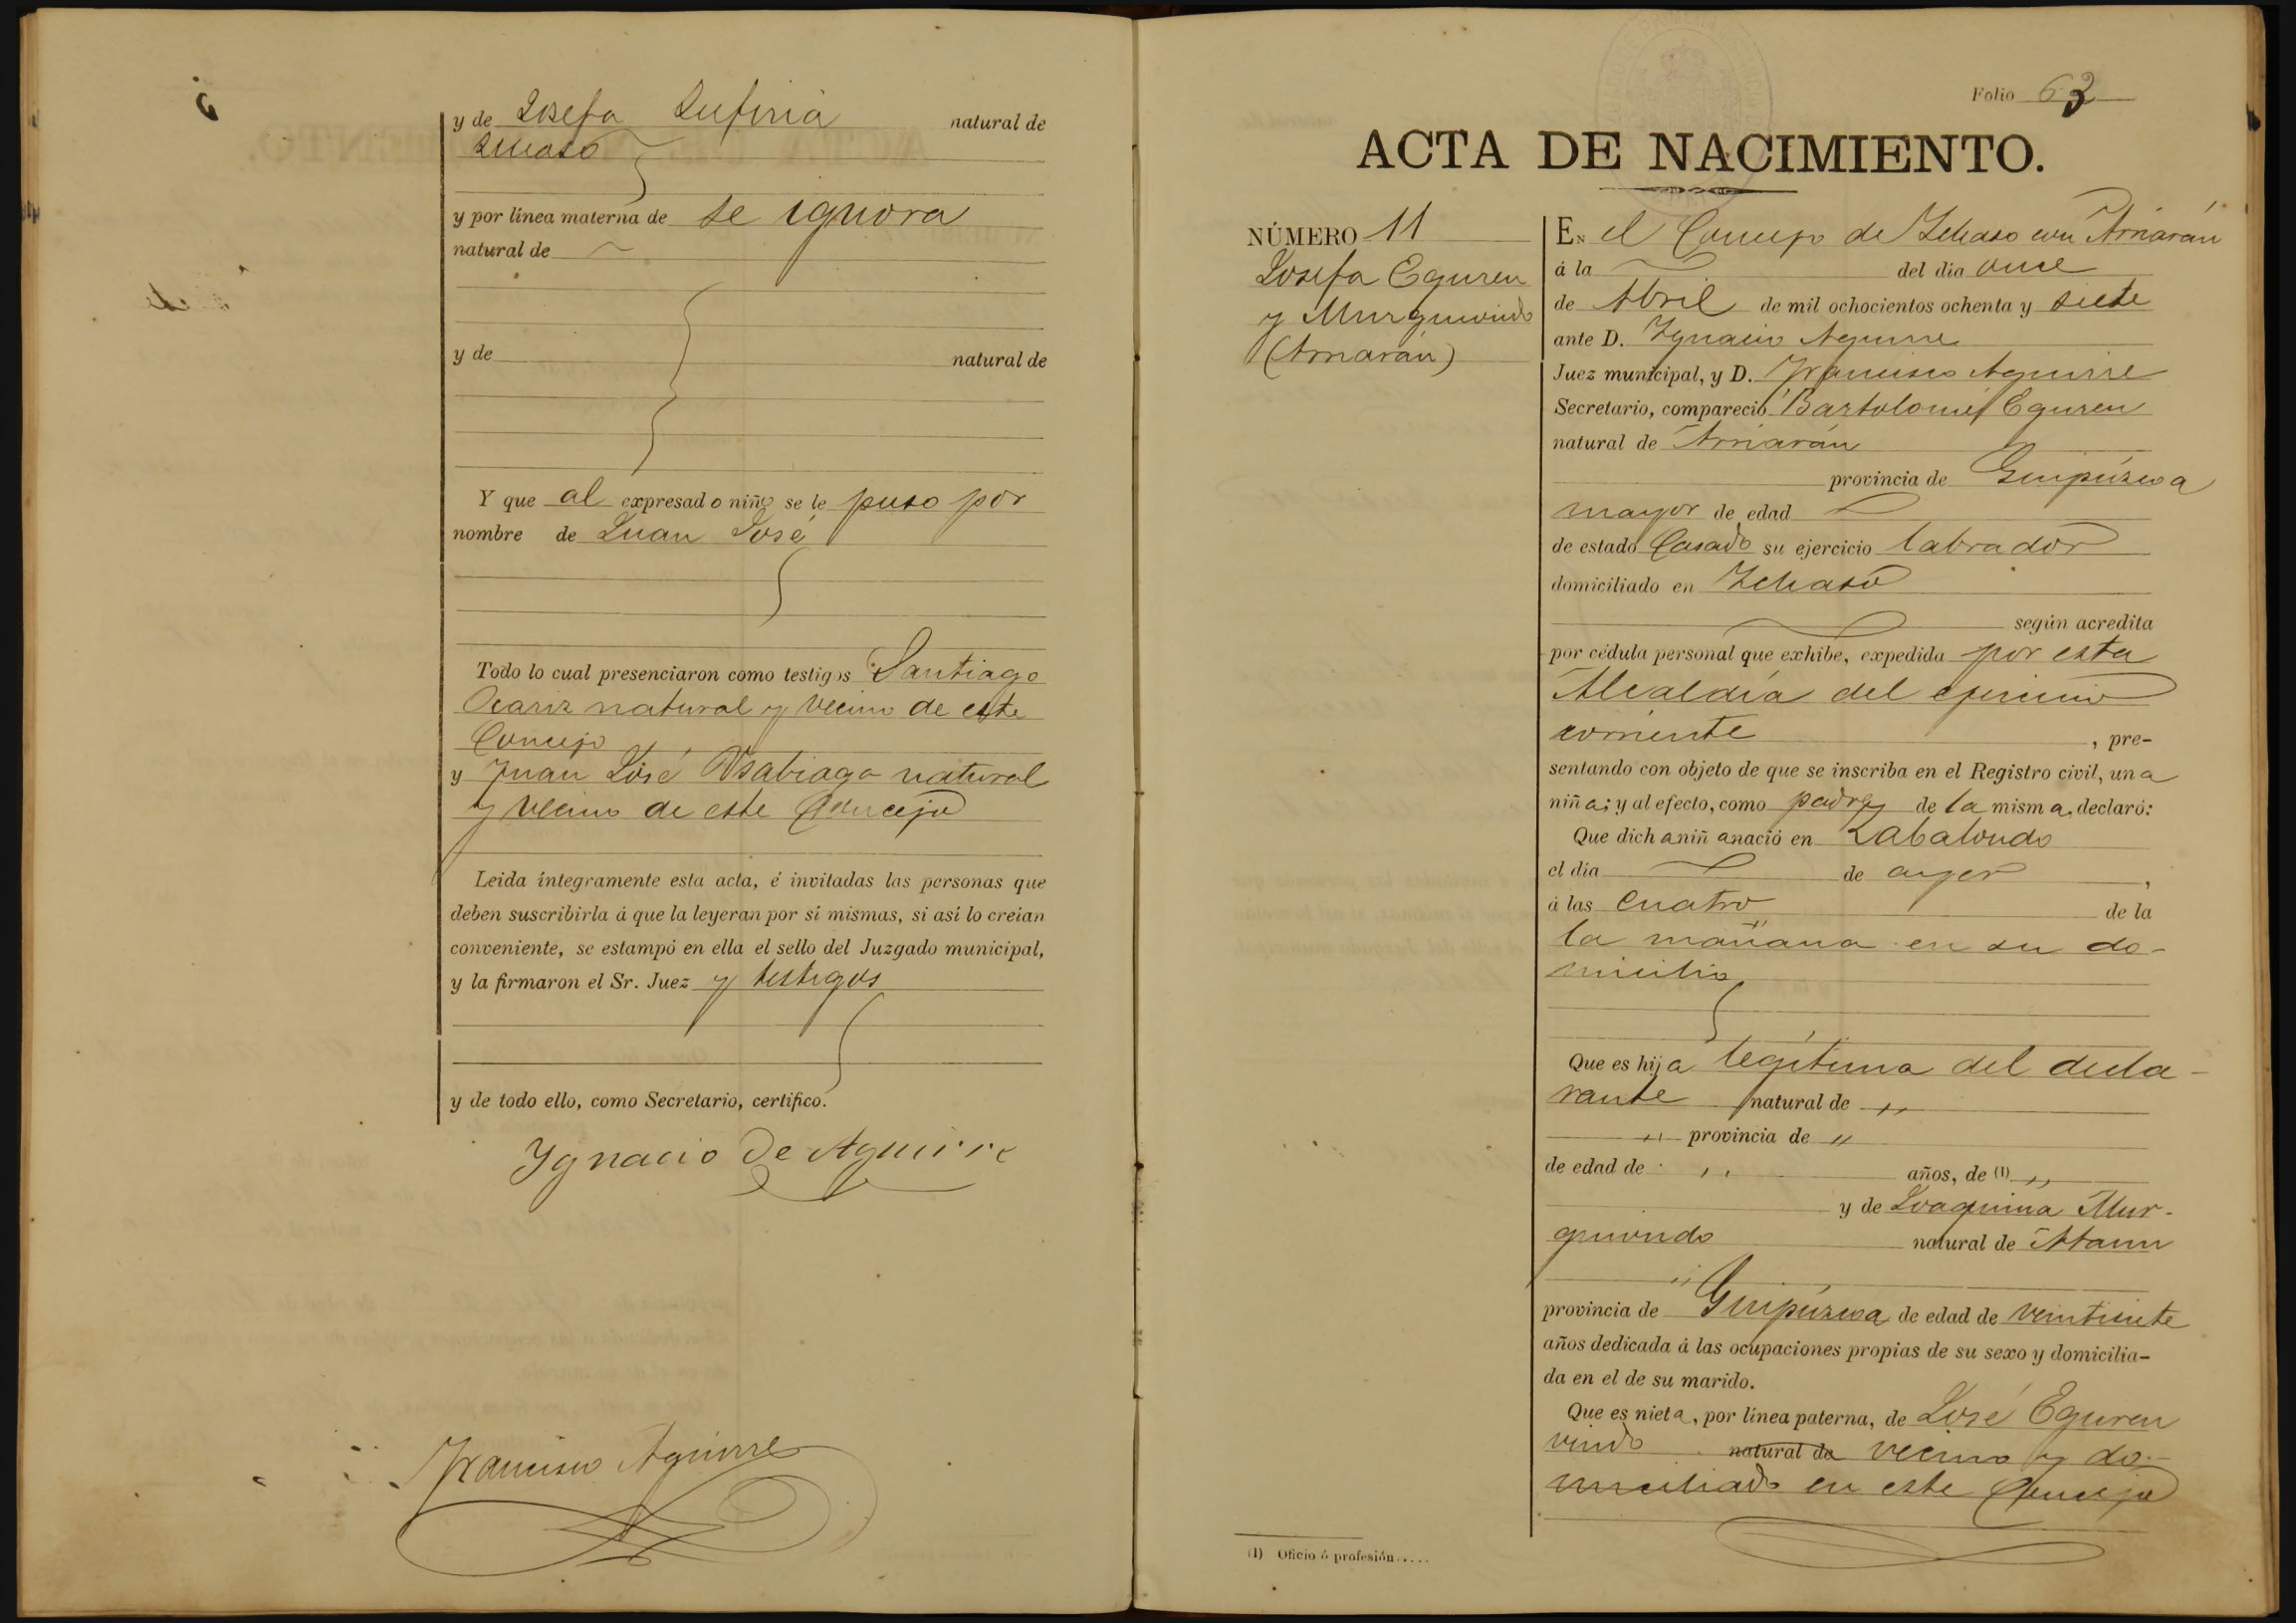 y de Josefa Zufiria natural de
y por línea materna de se ignora
natural de
y de natural de
Y que al expresado niño se le puso por
nombre de Juan José
Todo lo cual presenciaron como testigos Santiago
Ocariz natural y vecino de este
Concejo
y Juan José Usabiaga natural
y vecino de este Concejo
Leida íntegramente esta acta, é invitadas las personas que
deben suscribirla á que la leyeran por sí mismas, si así lo creían
conveniente, se estampó en ella el sello del Juzgado municipal,
y la firmaron el Sr. Juez y testigos
y de todo ello, como Secretario, certifico.
Ygnacio de Aguirre
Francisco Aguirre
Folio 63
ACTA DE NACIMIENTO.
NÚMERO 11
Josefa Eguren
y Murguiondo
(Arriarán)
EN el Concejo de Ichaso con Arriarán
á la del dia once
de Abril de mil ochocientos ochenta y siete
ante D. Ygnacio Aguirre
Juez municipal, y D. Francisco Aguirre
Secretario, compareció Bartolomé Eguren
natural de Arriarán
provincia de Guipúzcoa
mayor de edad
de estado Casado su ejercicio labrador
domiciliado en Ichaso
según acredita
por cédula personal que exhibe, expedida por esta
Alcaldía del ejercicio
corriente , pre-
sentando con objeto de que se inscriba en el Registro civil, una
niña; y al efecto, como padre de la misma, declaró:
Que dicha niña nació en Zabalondo
el día de ayer ,
á las cuatro de la
la mañana en su do-
micilio
Que es hija legítima del decla-
rante natural de "
" provincia de "
de edad de " años, de (1) "
y de Joaquina Mur-
guiondo natural de Ataun
"
provincia de Guipúzcoa de edad de veintisiete
años dedicada á las ocupaciones propias de su sexo y domicilia-
da en el de su marido.
Que es nieta, por línea paterna, de José Eguren
viudo natural de vecino y do-
miciliado en este Concejo
(1) Oficio ó profesión.....